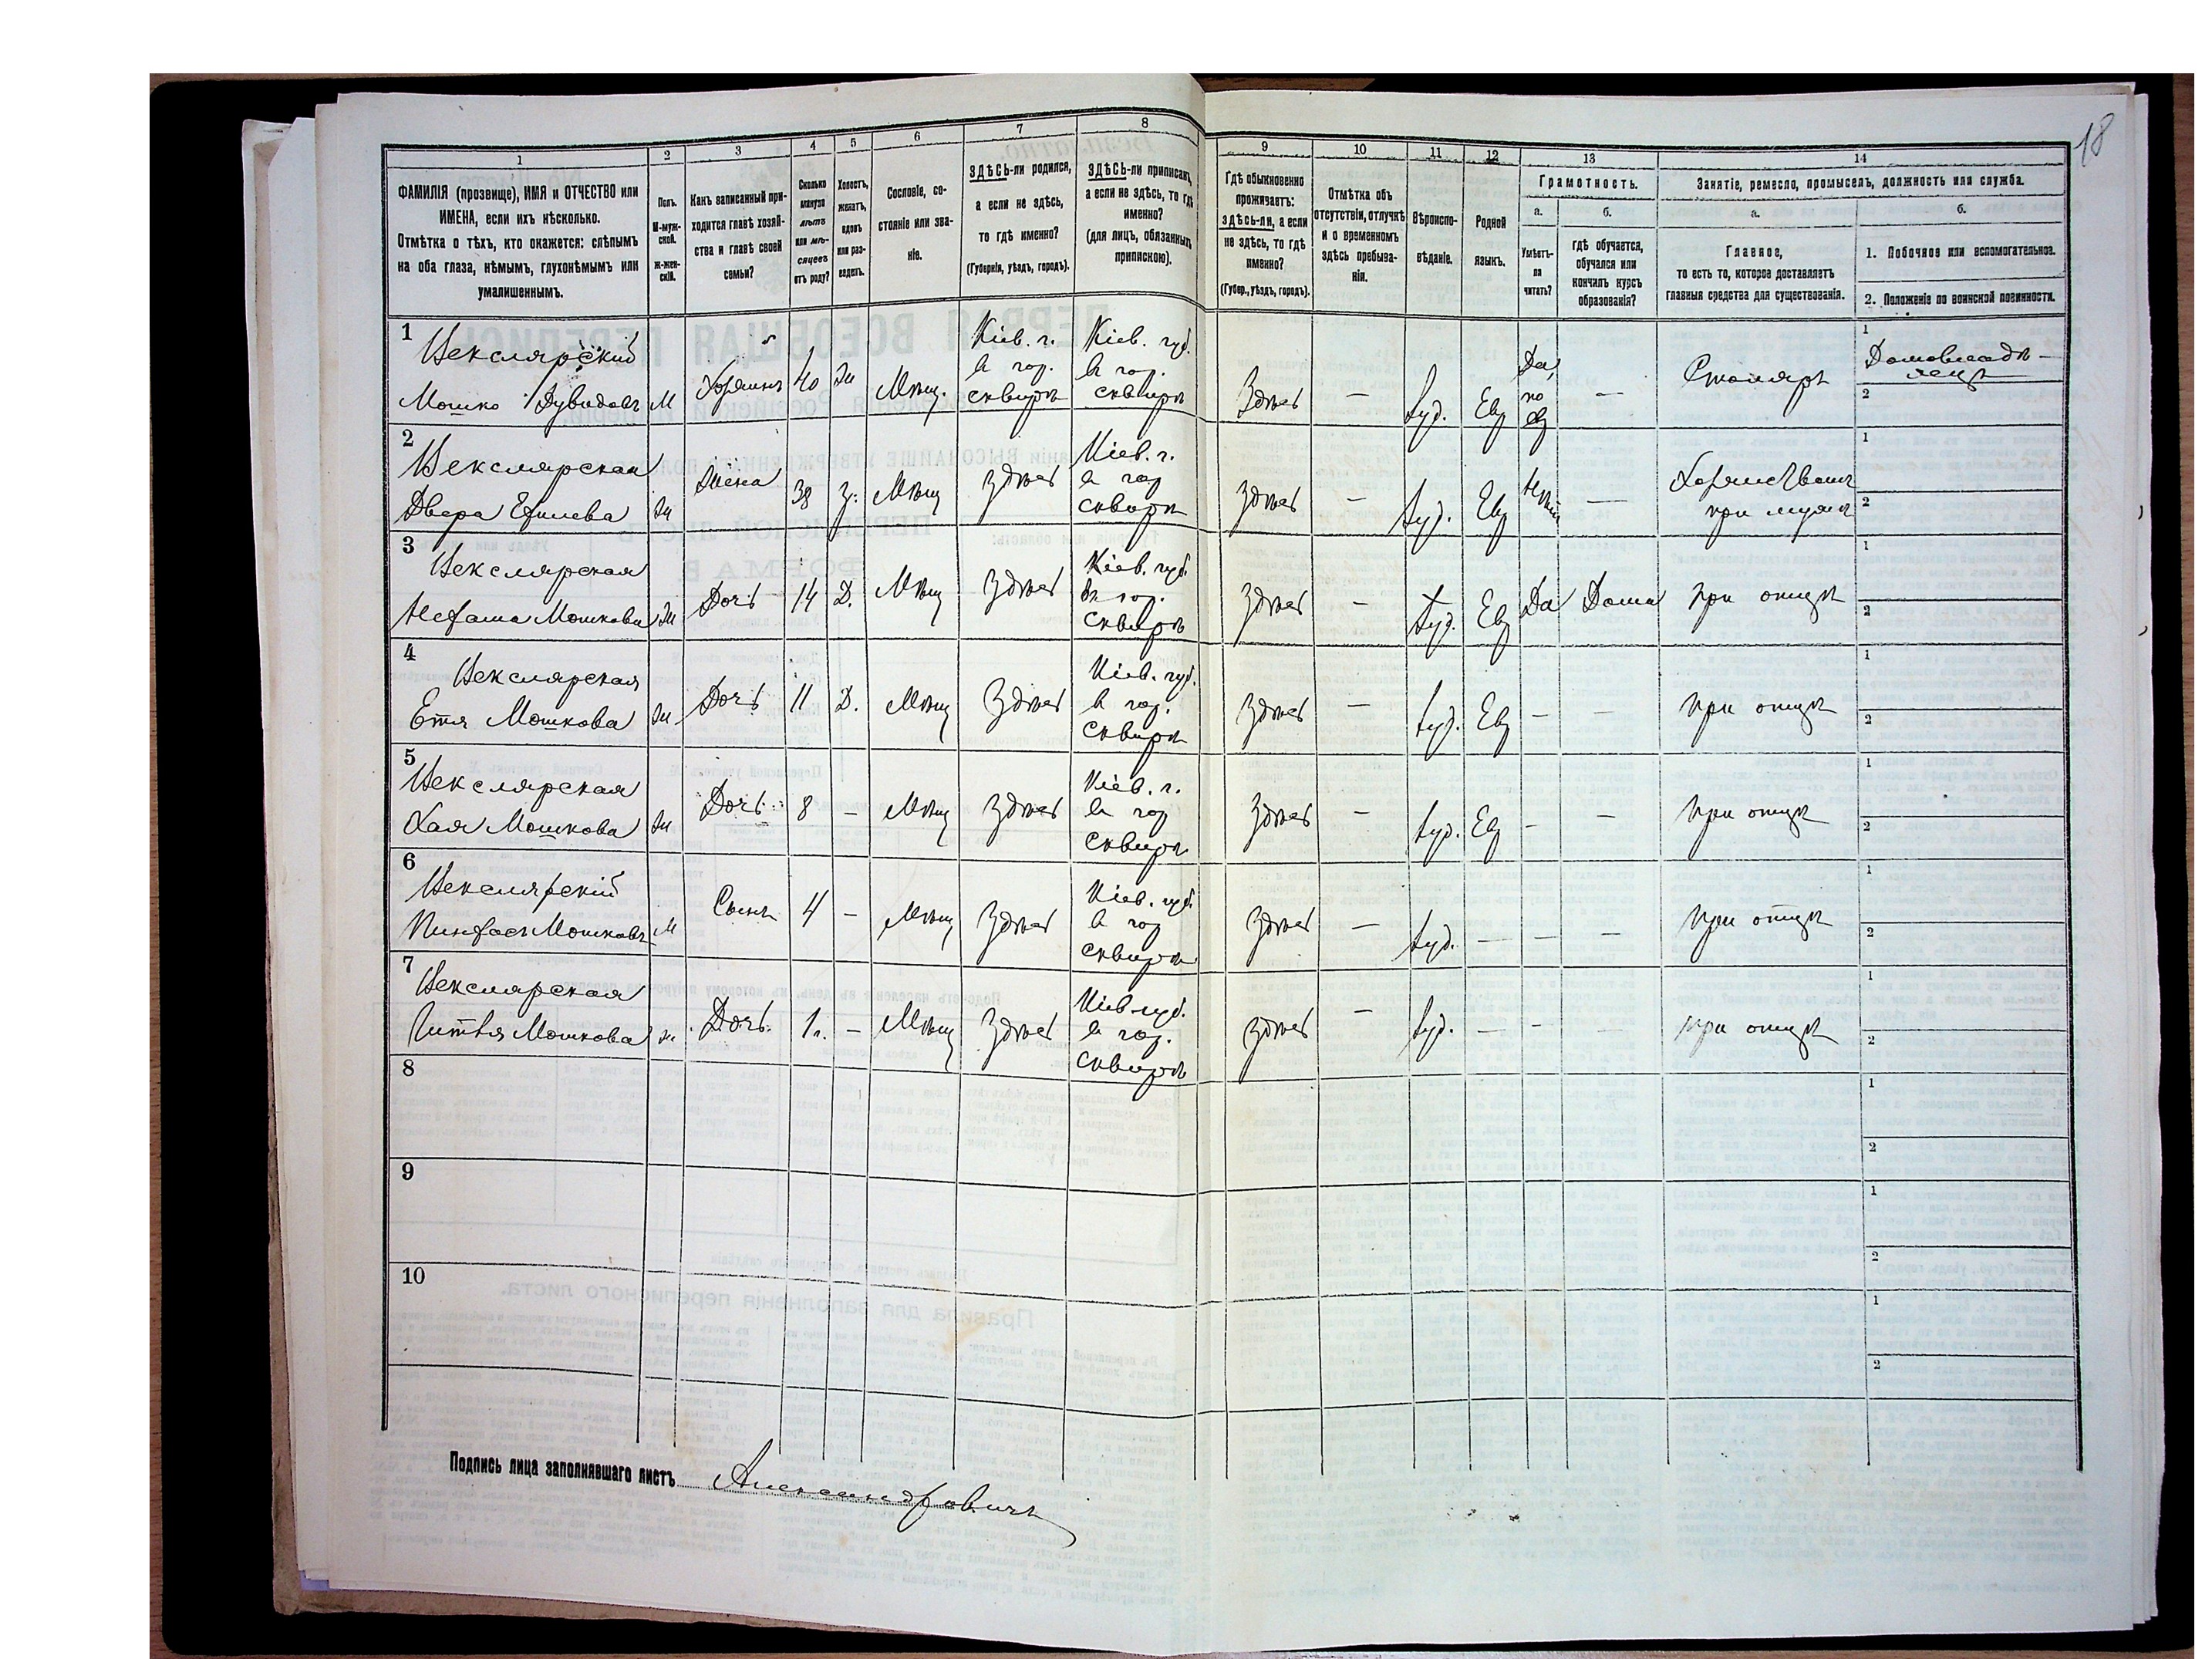 18
1 2 3 4 5 6 7 8 9 10 11 12 13 14
ФАМИЛІЯ (прозвище), ИМЯ и ОТЧЕСТВО или
ИМЕНА, если ихъ нѣсколько.
Отмѣтка о тѣхъ, кто окажется: слѣпымъ
на оба глаза, нѣмымъ, глухонѣмымъ или
умалишеннымъ.
Полъ.
М-муж-
ской.
ж-жен-
скій.
Какъ записанный при-
ходится главѣ хозяй-
ства и главѣ своей
семьи?
Сколько
минуло
лѣтъ
или мѣ-
сяцевъ
отъ роду?
Холостъ,
женатъ,
вдовъ
или раз-
веденъ.
Сословіе, со-
стояніе или зва-
ніе.
ЗДѢСЬ-ли родился,
а если не здѣсь,
то гдѣ именно?
(Губернія, уѣздъ, городъ).
ЗДѢСЬ-ли приписанъ,
а если не здѣсь, то гдѣ
именно?
(для лицъ, обязанныхъ
припискою).
Гдѣ обыкновенно
проживаетъ:
здѣсь-ли, а если
не здѣсь, то гдѣ
именно?
(Губер., уѣздъ, городъ).
Отмѣтка объ
отсутствіи, отлучкѣ
и о временномъ
здѣсь пребыва-
ніи.
Вѣроиспо-
вѣданіе.
Родной
языкъ.
Грамотность.
а.
Умѣетъ-
ли
читать?
б.
гдѣ обучается,
обучался или
кончилъ курсъ
образованія?
Занятіе, ремесло, промыселъ, должность или служба.
а.
Главное,
то есть то, которое доставляетъ
главныя средства для существованія.
б.
1. Побочное или вспомогательное.
2. Положеніе по воинской повинности.
1
Векслярскій
Мошко Дувидовъ М Хозяинъ 40 Ж Мѣщ.
Кіев. г.
въ гор.
Сквирѣ
Кіев. губ.
въ гор.
Сквирѣ
Здѣсь — Іуд. Евр
Да,
по
евр
— Столяръ
1 Домовладѣ-
лецъ
2
2
Векслярская
Двера Ж Жена 38 З. Мѣщ Здѣсь
Кіев. г.
въ гор
Сквирѣ
Здѣсь — Іуд. Евр Нѣт —
Хозяйством
при мужѣ
1
2
3
Векслярская
Мошкова Ж Дочь 14 Д. Мѣщ Здѣсь
Кіев. губ.
въ гор.
Сквирѣ
Здѣсь — Іуд. Евр Да Дома при отцѣ
1
2
4
Векслярская
Етя Мошкова Ж Дочь 11 Д. Мѣщ Здѣсь
Кіев. губ.
въ гор.
Сквирѣ
Здѣсь — Іуд. Евр — — при отцѣ
1
2
5
Векслярская
Хая Мошкова Ж Дочь 8 — Мѣщ Здѣсь
Кіев. г.
въ гор
Сквирѣ
Здѣсь — Іуд. Евр — — при отцѣ
1
2
6
Векслярскій
Пинхас Мошковъ М Сынъ 4 — Мѣщ Здѣсь
Кіев. губ.
въ гор
Сквирѣ
Здѣсь — Іуд. — — — при отцѣ
1
2
7
Векслярская
Гитля Мошкова Ж Дочь 1 г. — Мѣщ Здѣсь
Кіев. губ.
въ гор.
Сквирѣ
Здѣсь — Іуд. — — — при отцѣ
1
2
8
1
2
9
1
2
10
1
2
Подпись лица заполнявшаго листъ Александровичъ